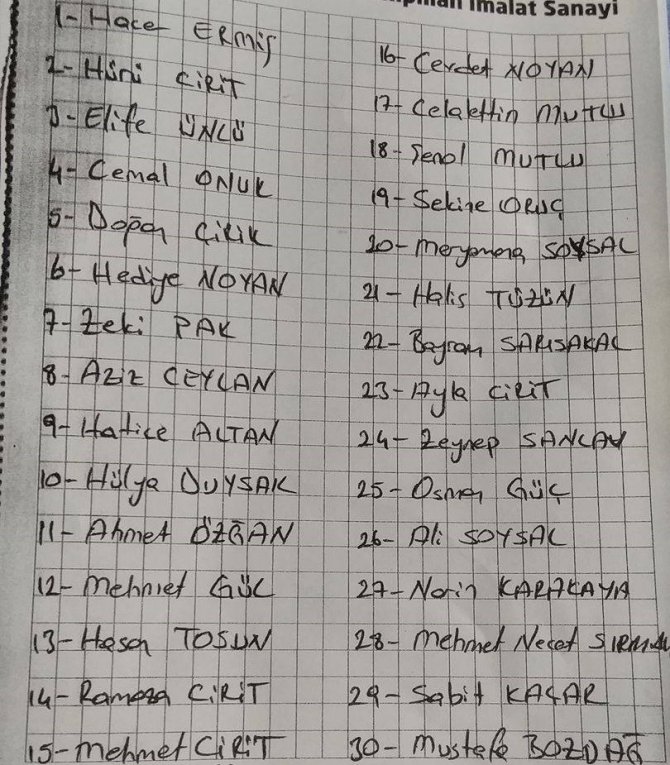 İmalat Sanayi
1- Hacer ERMİŞ
2- Hüsnü CİRİT
3- Elife ÜNLÜ
4- Cemal ONUK
5- Doğan ÇİLİK
6- Hediye NOYAN
7- Zeki PAK
8- Aziz CEYLAN
9- Hatice ALTAN
10- Hülya DUYSAK
11- Ahmet ÖZGAN
12- Mehmet GÜÇ
13- Hasan TOSUN
14- Ramazan CİRİT
15- Mehmet CİRİT
16- Cevdet NOYAN
17- Celalettin MUTLU
18- Şenol MUTLU
19- Sekine ORUÇ
20- Meryemana SOYSAL
21- Halis TÜZÜN
22- Bayram SARISAKAL
23- Ayla CİRİT
24- Zeynep SANCAY
25- Osman GÜÇ
26- Ali SOYSAL
27- Narin KARAKAYA
28- Mehmet Necat
29- Sabit KAÇAR
30- Mustafa BOZDAĞ